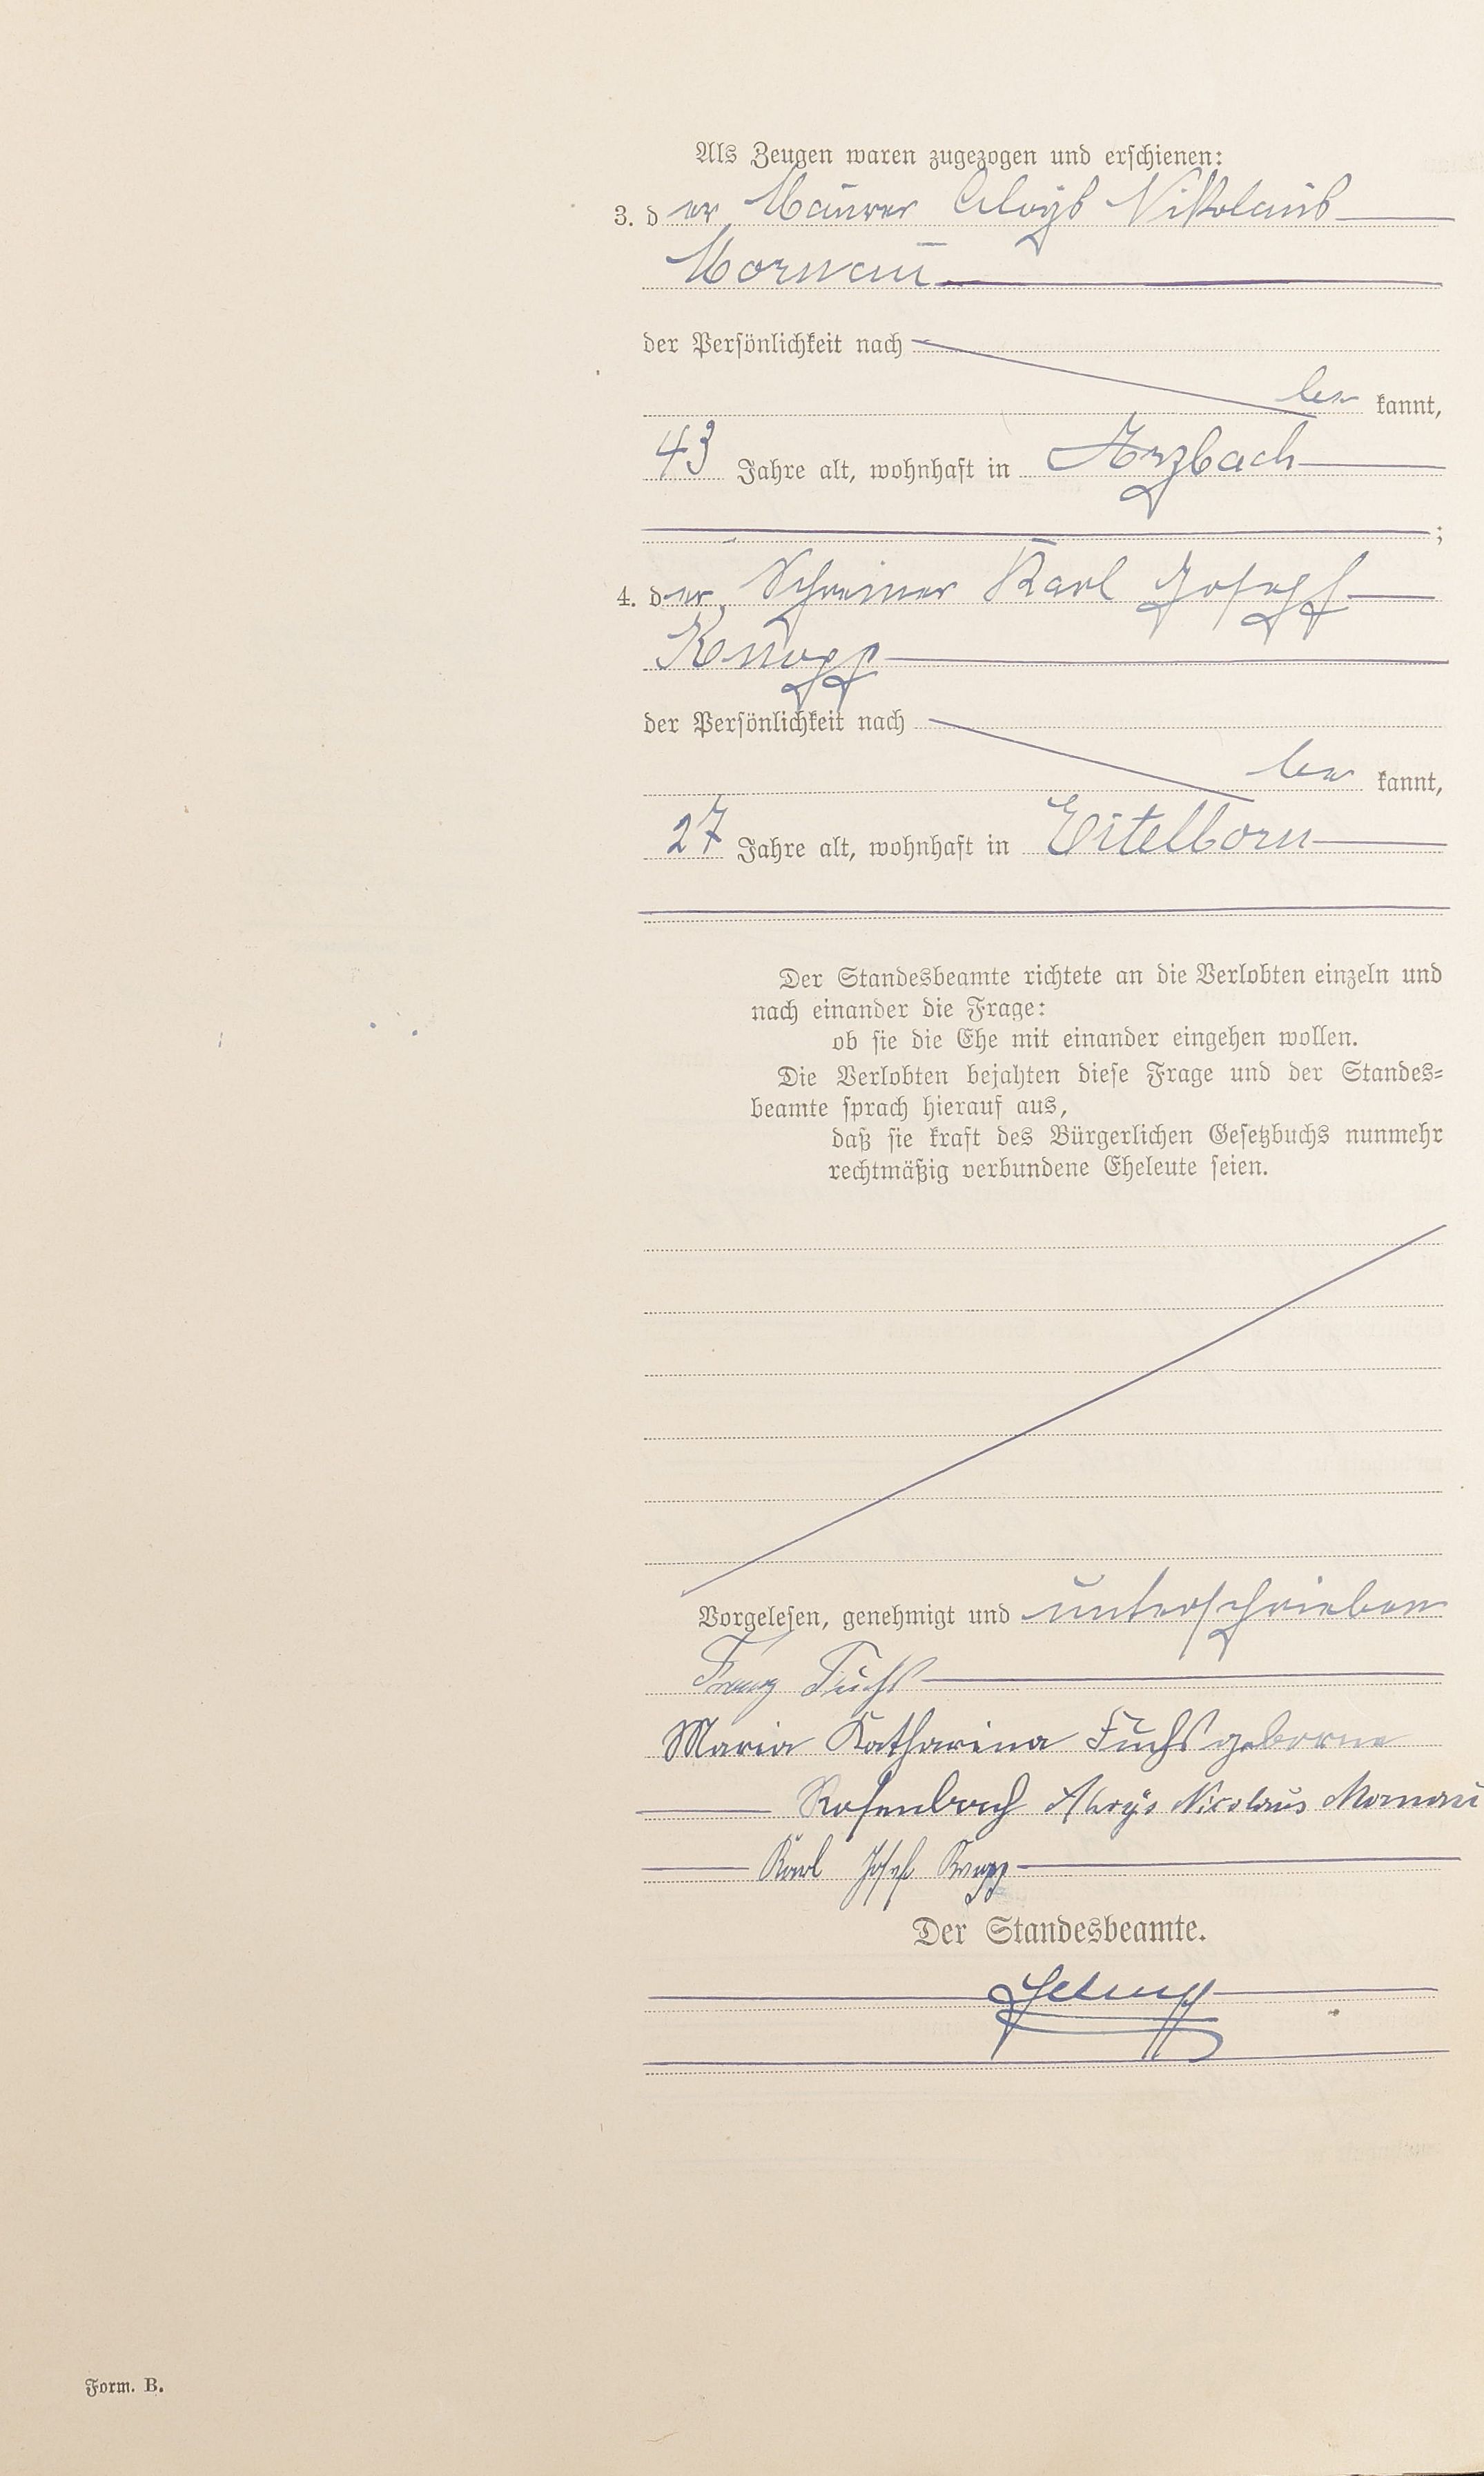 Als Zeugen waren zugezogen und erschienen:
3. der Maurer Aloys Nikolaus
Mornau
der Persönlichkeit nach
be kannt,
43 Jahre alt, wohnhaft in Arzbach
;
4. der Schreiner Karl Joseph
Knopp
der Persönlichkeit nach
be kannt,
27 Jahre alt, wohnhaft in Eitelborn
Der Standesbeamte richtete an die Verlobten einzeln und
nach einander die Frage:
ob sie die Ehe mit einander eingehen wollen.
Die Verlobten bejahten diese Frage und der Standes=
beamte sprach hierauf aus,
daß sie kraft des Bürgerlichen Gesetzbuchs nunmehr
rechtmäßig verbundene Eheleute seien.
Vorgelesen, genehmigt und unterschrieben
Franz Fuchs
Maria Katharina Fuchs geborne
Rosenbach Aloys Nicolaus Mornau
Karl Josef Knopp
Der Standesbeamte.
Form. B.